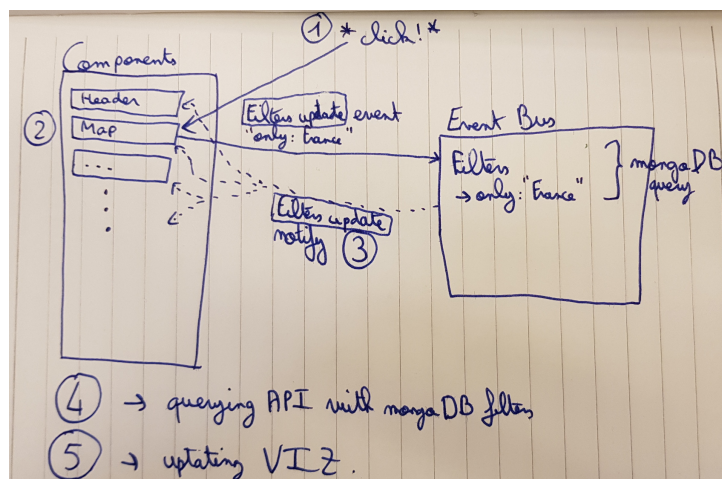 ① * click! *
Components
Header
② Map
....
Filters update event
"only: France"
Event Bus
Filters
→ only: "France"
mongoDB
query
Filters update
notify ③
④ → querying API with mongoDB filters
⑤ → uptating VIZ.